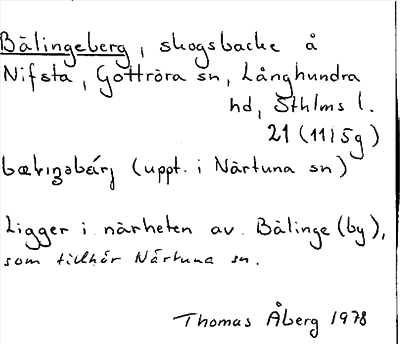 Bälingeberg, skogsbacke å
Nifsta, Gottröra sn, Långhundra
hd, Sthlms l.
21 (11I5g)
(uppt. i Närtuna sn)
Ligger i närheten av Bälinge (by),
som tillhör Närtuna sn.
Thomas Åberg 1978